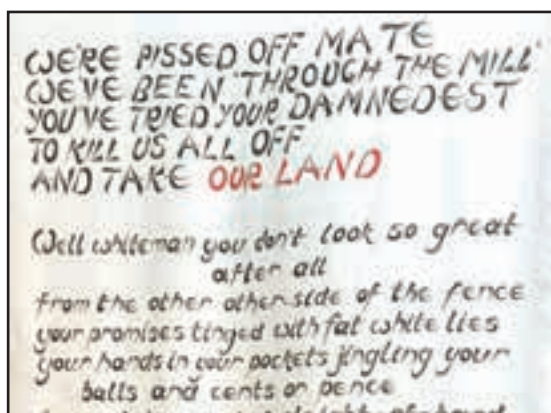 WE'RE PISSED OFF MATE
WE'VE BEEN 'THROUGH THE MILL'
YOU'VE TRIED YOUR DAMNEDEST
TO KILL US ALL OFF
AND TAKE OUR LAND
Well whiteman you don't look so great
after all
from the other other side of the fence
your promises tinged with fat white lies
your hands in your pockets jingling your
balls and cents or pence